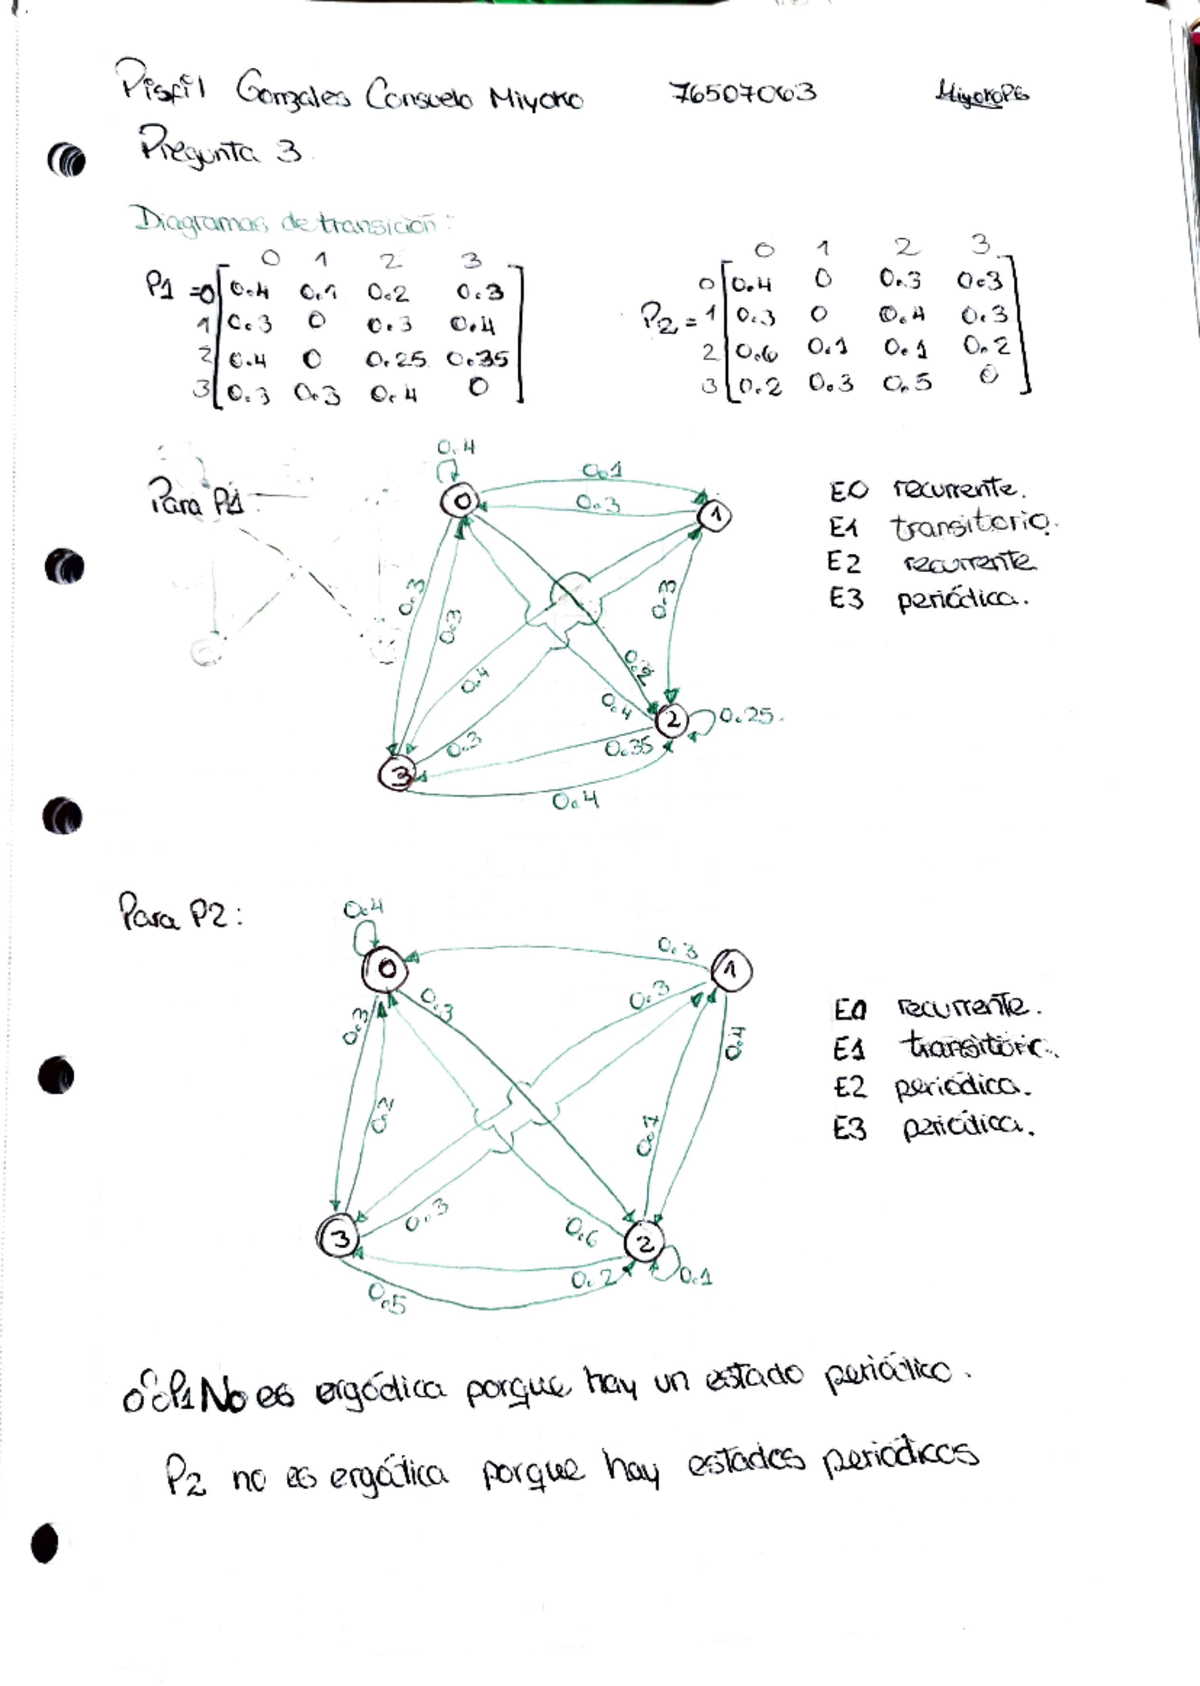 Pisfil Gonzales Consuelo Miyoko 76507063 MiyokoPG
Pregunta 3.
Diagramas de transición:
0 1 2 3
P1 = 0 0.4 0.1 0.2 0.3
1 0.3 0 0.3 0.4
2 0.4 0 0.25 0.35
3 0.3 0.3 0.4 0
0 1 2 3
0 0.4 0 0.3 0.3
P2 = 1 0.3 0 0.4 0.3
2 0.6 0.1 0.1 0.2
3 0.2 0.3 0.5 0
Para P1
0.4
0
0.1
0.3
1
0.3
0.3
0.3
0.4
0.3
0.2
0.4
2
0.25
0.35
3
0.4
E0 recurrente.
E1 transitorio.
E2 recurrente
E3 periódica.
Para P2:
0.4
0
0.3
1
0.3
0.3
0.3
0.4
0.2
0.3
0.6
3
2
0.2
0.1
0.5
E0 recurrente.
E1 transitorio.
E2 periódica.
E3 periódica.
P1 No es ergódica porque hay un estado periódico.
P2 no es ergódica porque hay estados periódicos